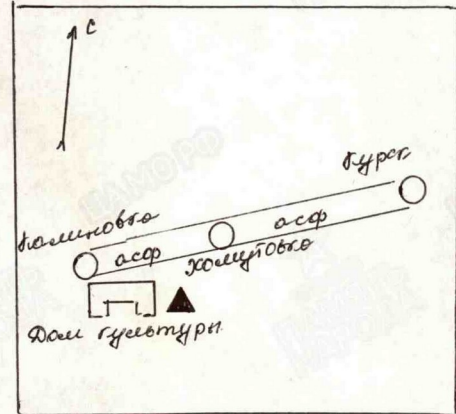 С
Курск
Калиновка
асф
асф
Хомутовка
Дом культуры